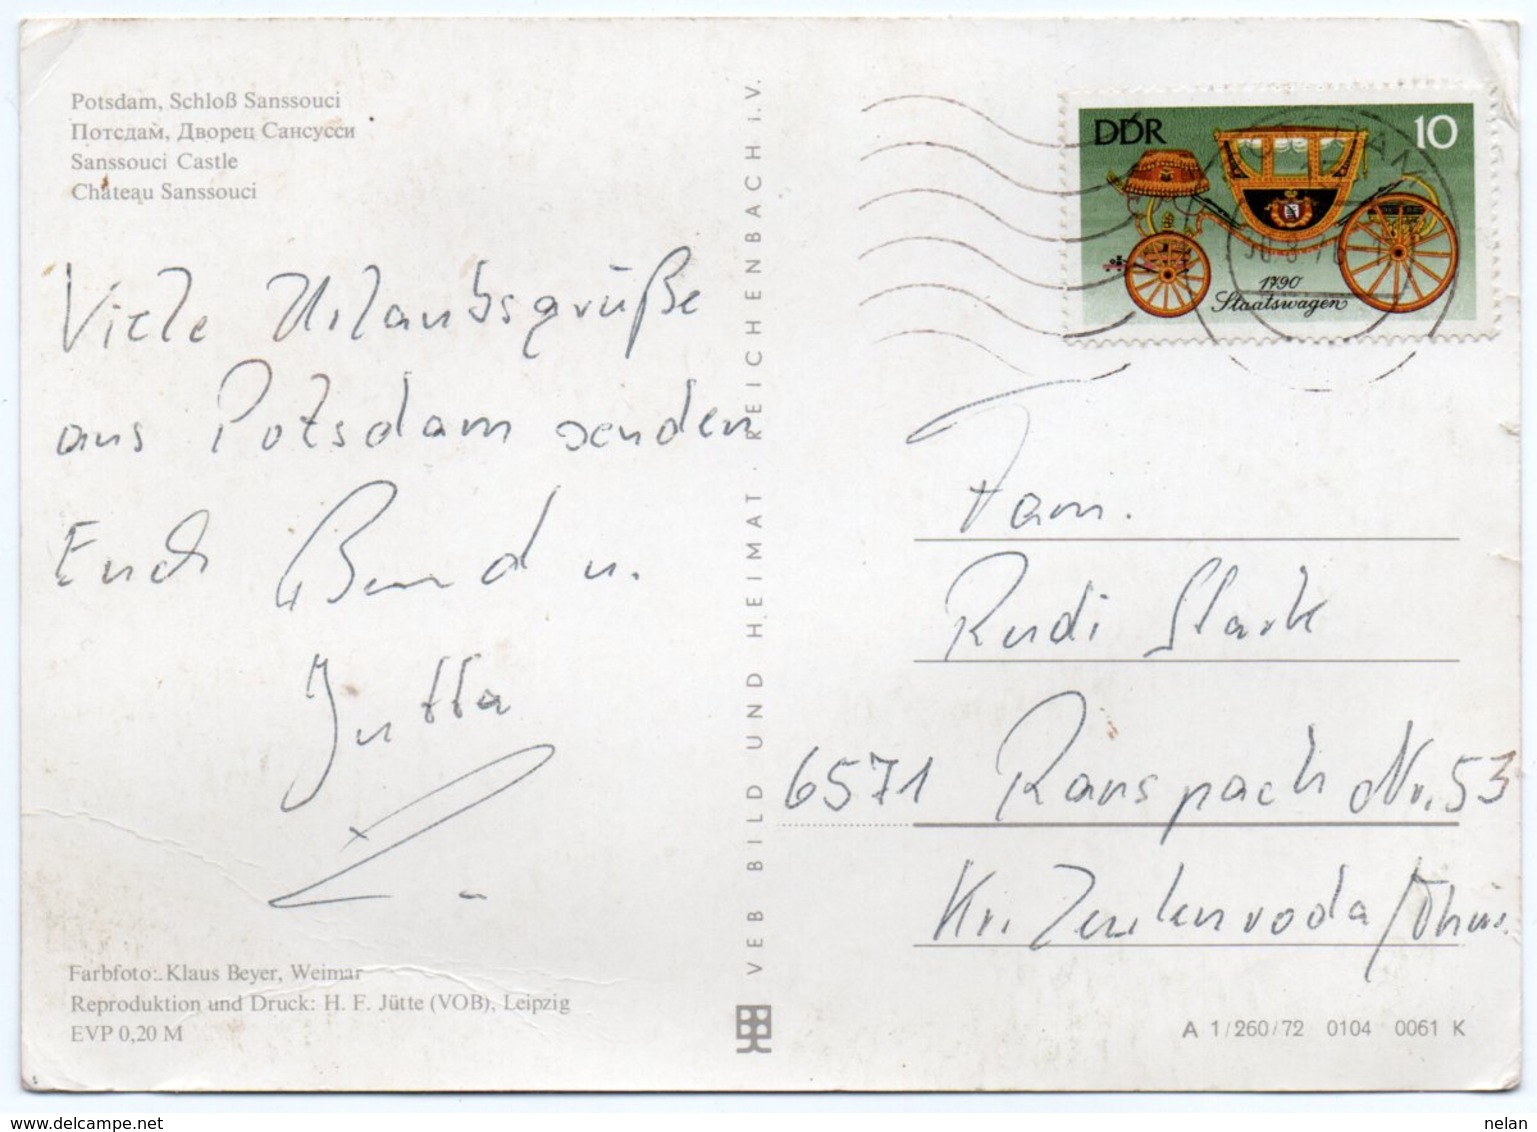 Potsdam, Schloß Sanssouci
Потсдам, Дворец Сансусси
Sanssouci Castle
Château Sanssouci
Viele Urlaubsgrüße
aus Potsdam senden
Euch Bernd u.
Jutta
Farbfoto: Klaus Beyer, Weimar
Reproduktion und Druck: H. F. Jütte (VOB), Leipzig
EVP 0,20 M
VEB BILD UND HEIMAT · REICHENBACH i. V.
DDR 10
1790
Staatswagen
POTSDAM
Fam.
Rudi Stark
6571 Ranspach Nr. 53
Kr. Zeulenroda/Thür.
A 1/260/72 0104 0061 K
delcampe.net
nelan